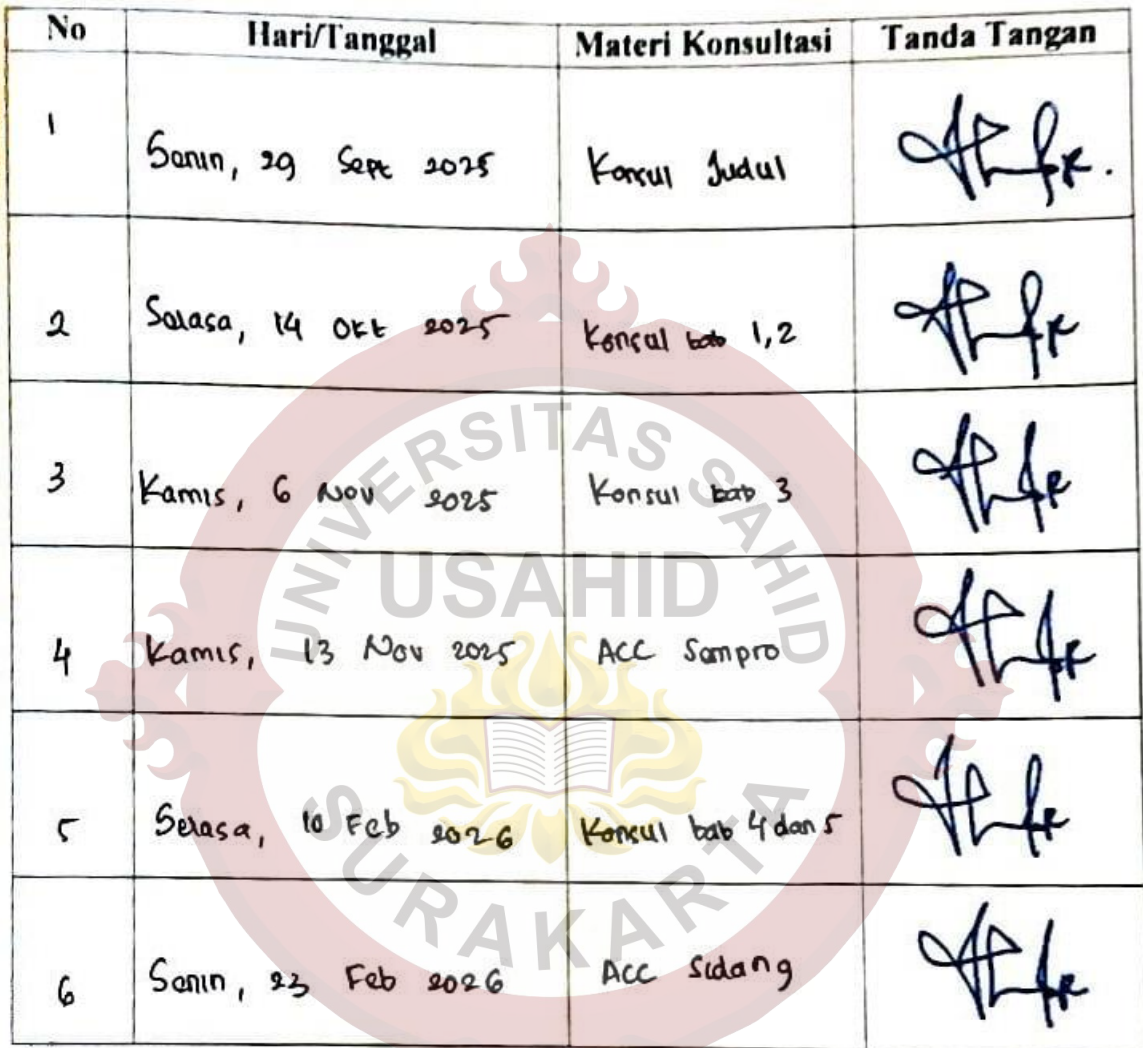 No Hari/Tanggal Materi Konsultasi Tanda Tangan
1 Senin, 29 Sept 2025 Konsul Judul
2 Selasa, 14 Okt 2025 Konsul bab 1,2
3 Kamis, 6 Nov 2025 Konsul bab 3
4 Kamis, 13 Nov 2025 ACC Sempro
5 Selasa, 10 Feb 2026 Konsul bab 4 dan 5
6 Senin, 23 Feb 2026 ACC Sidang
UNIVERSITAS SAHID
USAHID
SURAKARTA